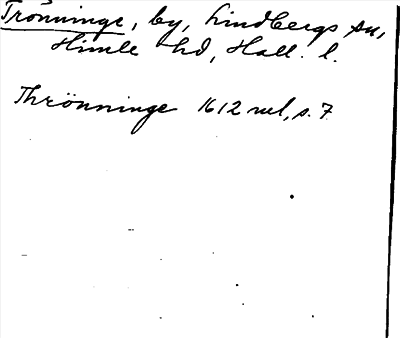 Trönninge, by, Lindbergs sn,
Himle hd, Hall. l.
Thrönninge 1612 rel, s. 7